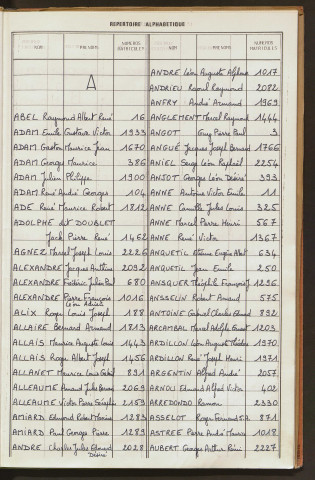 REPERTOIRE ALPHABETIQUE
NOM PRENOM NUMEROS MATRICULES NOM PRENOM NUMEROS MATRICULES
A
ABEL Raymond Albert René 16
ADAM Emile Gustave Victor 1933
ADAM Gaston Maurice Jean 1670
ADAM Georges Maurice 386
ADAM Julien Philippe 1900
ADAM René André Georges 104
ADE René Maurice Robert 1812
ADOLPHE dit DOUBLET
Jack Pierre René 1462
AGNEZ Marcel Joseph Louis 2226
ALEXANDRE Jacques Arthur 2092
ALEXANDRE Frédéric Julien Paul 680
ALEXANDRE Pierre François 1016
Léon Adrien
ALIX Roger Louis Joseph 188
ALLAIRE Bernard Armand 1813
ALLAIS Maurice Auguste Louis 1443
ALLAIS Roger Albert Joseph 1456
ALLANET Maurice Louis 891
ALLEAUME Armand Jules 2069
ALLEAUME Victor 2153
AMIARD Edmond Robert 1283
AMIARD Paul Georges Pierre 1289
ANDRE Charles Jules Edouard 2028
Désiré
ANDRE Léon Auguste Alphonse 1017
ANDRIEU Raoul Raymond 2082
ANFRY André Armand 1969
ANGLEMENT Marcel Raymond 1444
ANGOT Guy Pierre Paul 3
ANGUÉ Jacques Joseph Bernard 1766
ANIEL Serge Léon Raphaël 2254
ANJOT Georges Léon Désiré 393
ANNE Antoine Victor Emile 11
ANNE Camille Jules Louis 325
ANNE Marcel Pierre Henri 567
ANNE René Victor 1367
ANQUETIL Etienne Eugène Albert 634
ANQUETIL Jean Emile 250
ANSQUER Théophile François 1296
ANSSELIN Robert Armand 575
ANTOINE Gabriel Charles Edouard 892
ARCAMBAL Marcel Adolphe 1203
ARDILLON Léon Auguste Théodore 1970
ARDILLON René Joseph Henri 1971
ARGENTIN Alfred André 2057
ARNOU Edmond Alfred Victor 402
ARREDONDO Ramon 2330
ASSELOT Roger Fernand 871
ASTREE Pierre André Maurice 1018
AUBERT Georges Arthur Rémi 2227